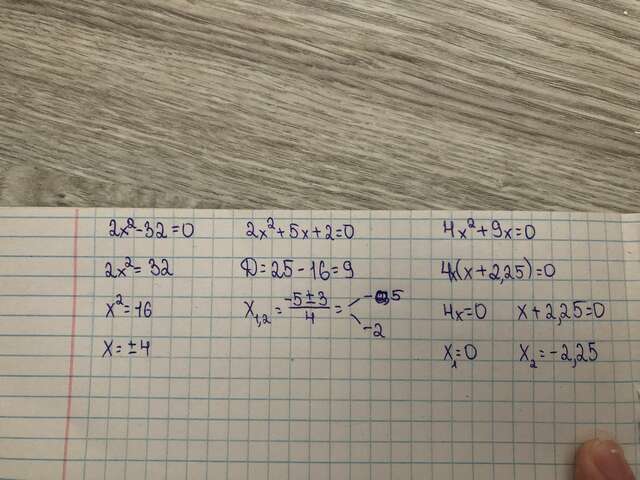 2x²-32=0
2x²=32
x²=16
x=±4
2x²+5x+2=0
D=25-16=9
x₁,₂=(-5±3)/4= -0,5
-2
4x²+9x=0
4x(x+2,25)=0
4x=0 x+2,25=0
x₁=0 x₂=-2,25